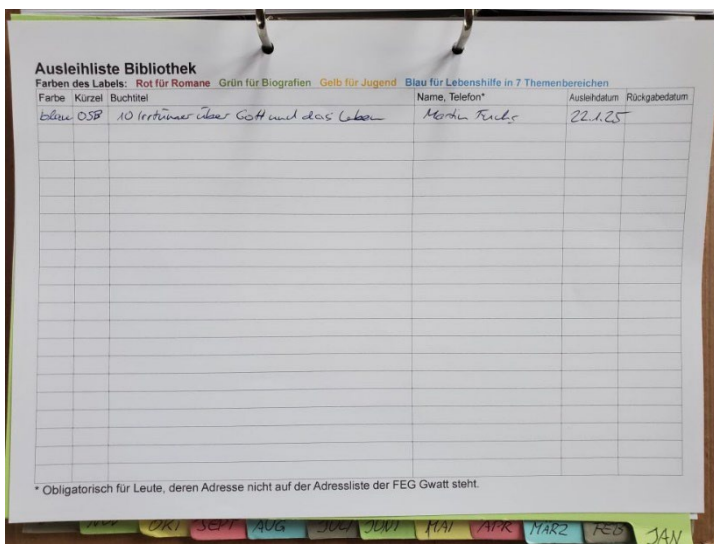 Ausleihliste Bibliothek
Farben des Labels: Rot für Romane Grün für Biografien Gelb für Jugend Blau für Lebenshilfe in 7 Themenbereichen
Farbe Kürzel Buchtitel Name, Telefon* Ausleihdatum Rückgabedatum
blau OSB 10 Irrtümer über Gott und das Leben Martin Fuchs 22.1.25
* Obligatorisch für Leute, deren Adresse nicht auf der Adressliste der FEG Gwatt steht.
NOV OKT SEPT AUG JULI JUNI MAI APR MÄRZ FEB JAN